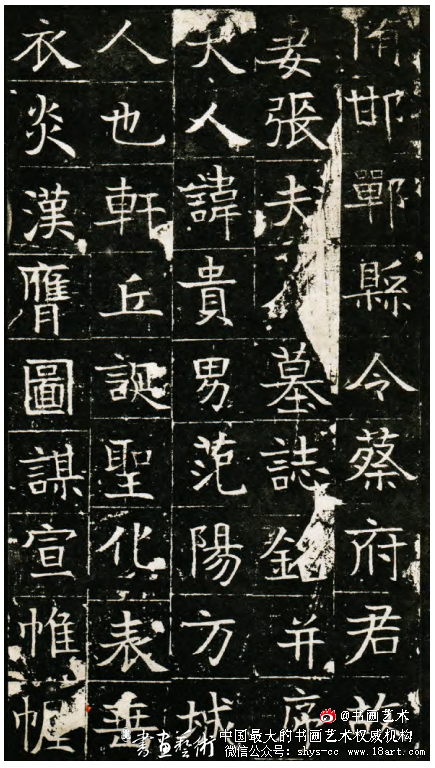 隋邯鄲縣令蔡府君故
妻張夫人墓誌銘并序
夫人諱貴男范陽方城
人也軒丘誕聖化表垂
衣炎漢膺圖謀宣帷幄
@书画艺术
書画藝術 中国最大的书画艺术权威机构
微信公众号：shys-cc www.18art.com